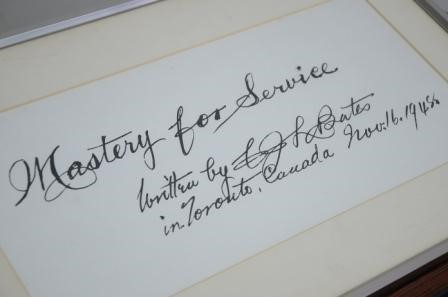 Mastery for Service
Written by C J L Bates
in Toronto, Canada Nov. 16. 1948